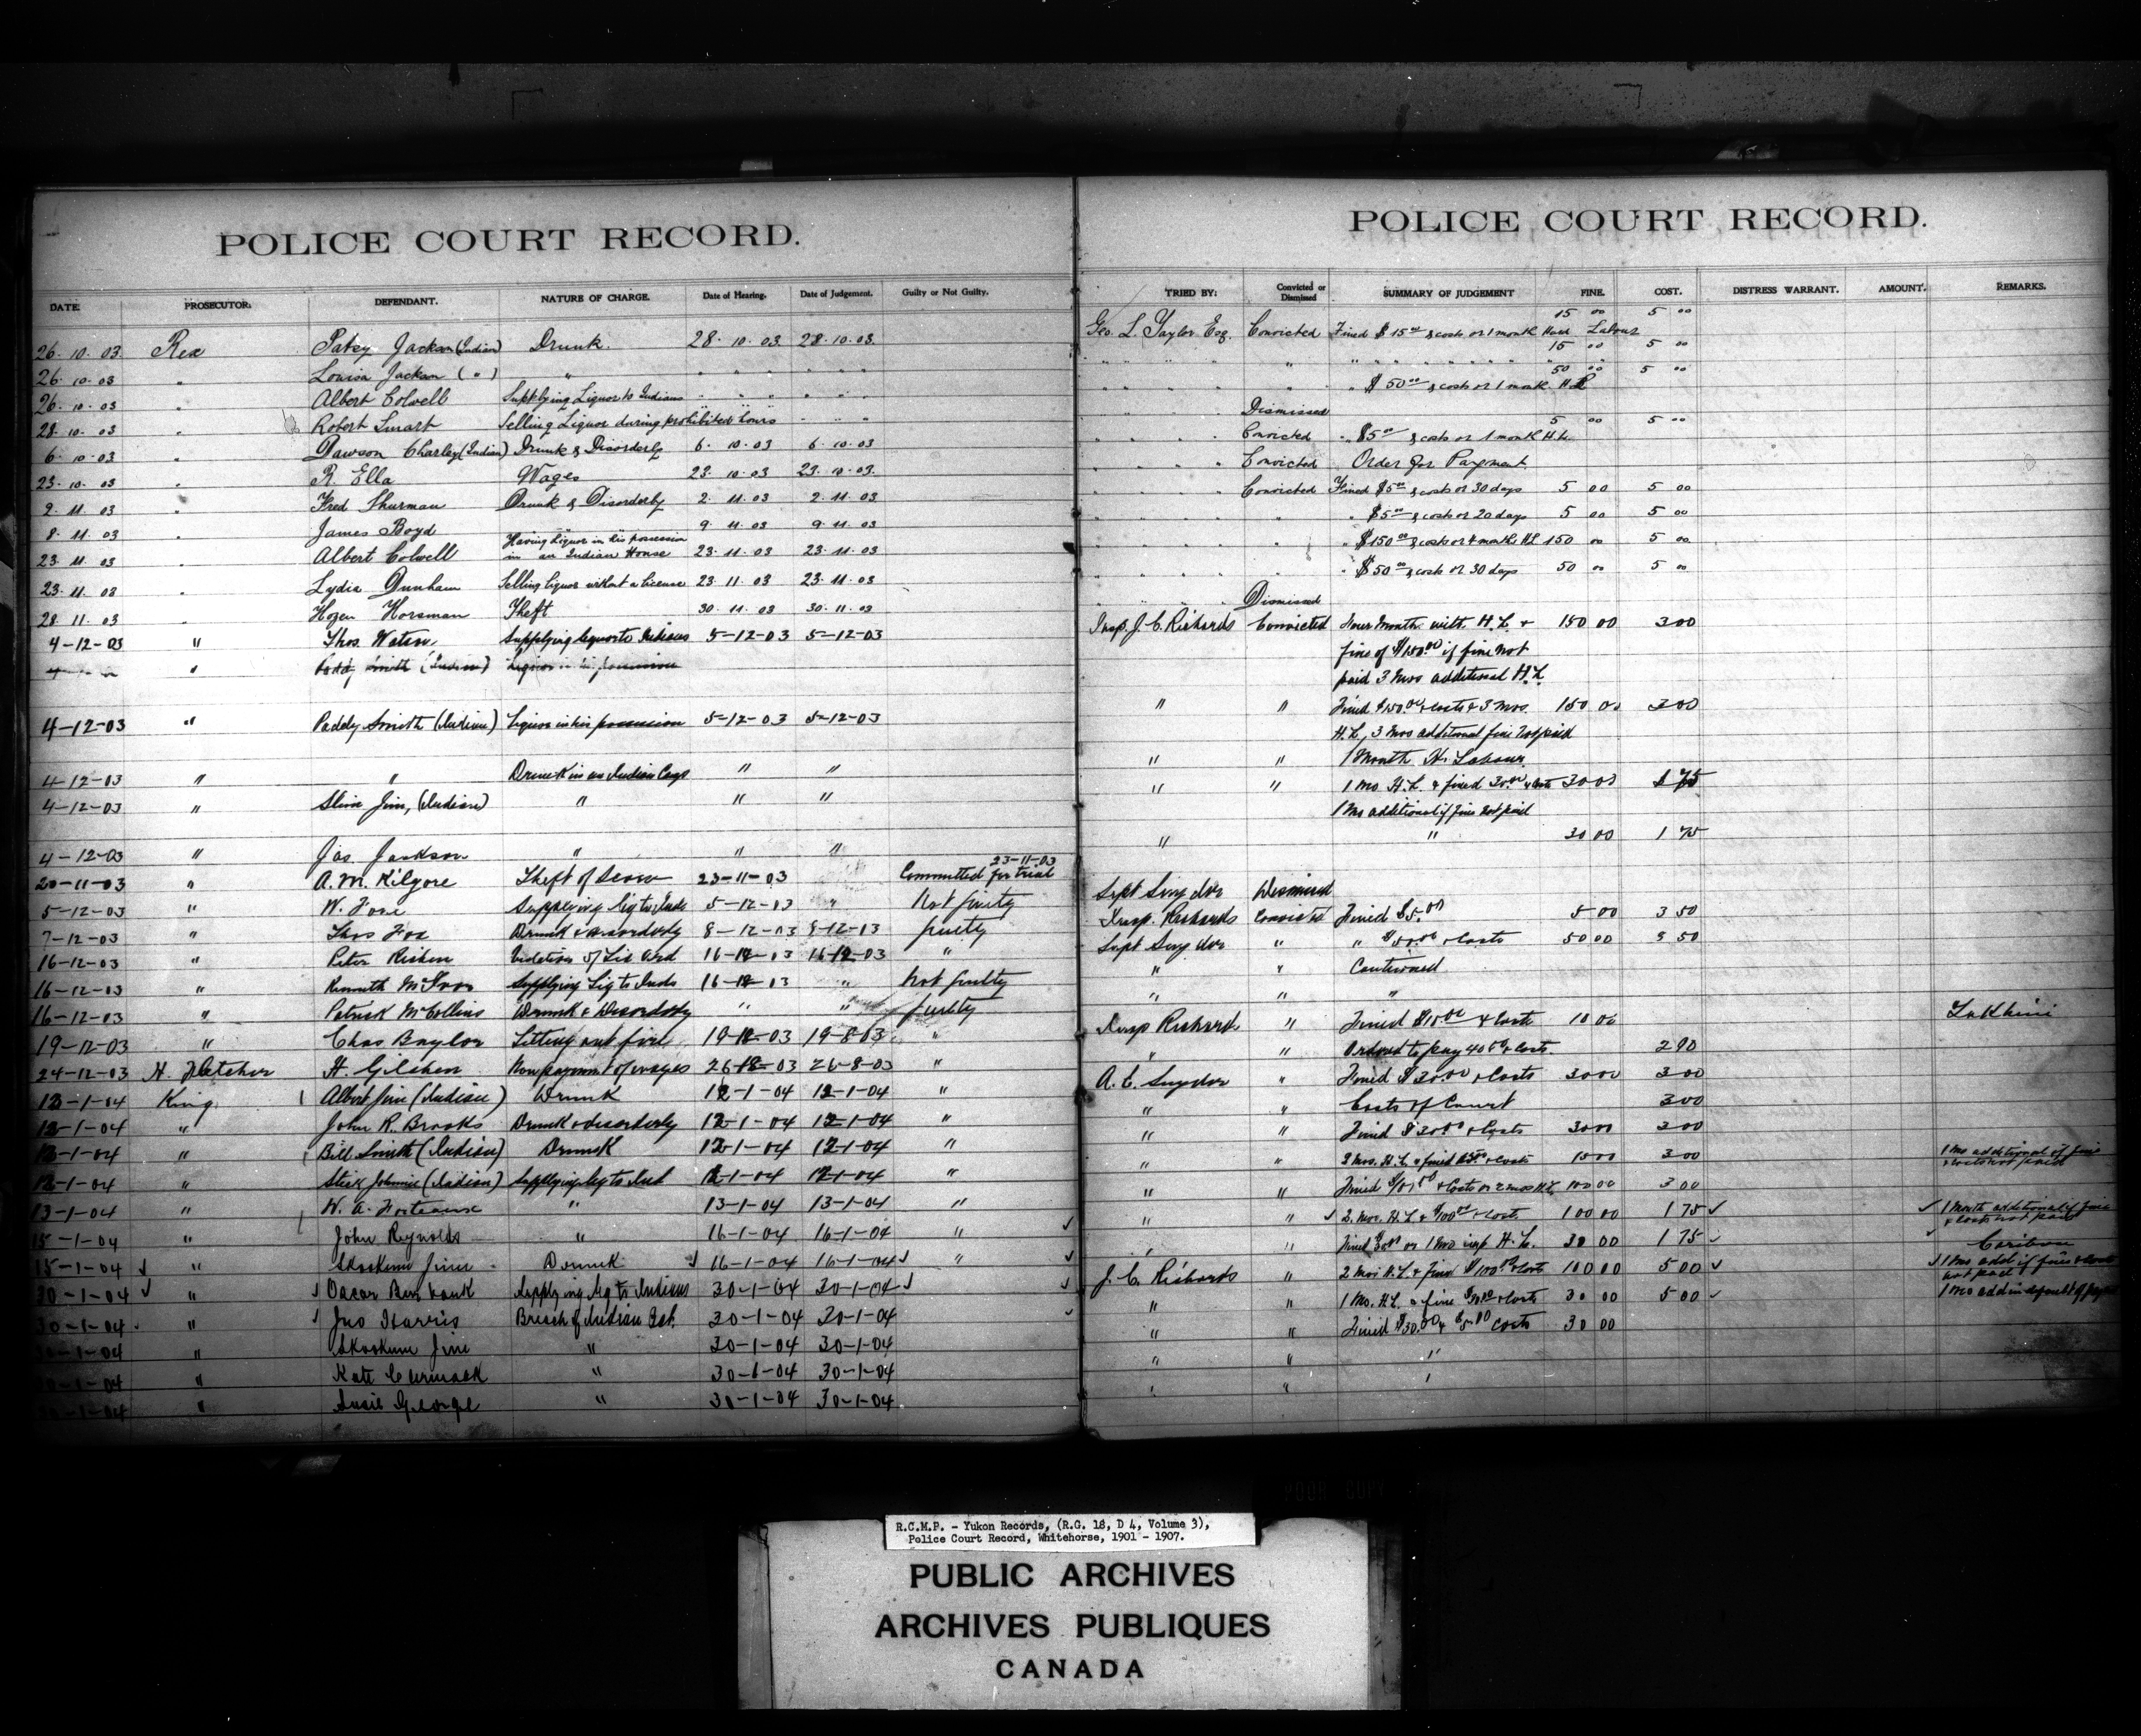 POLICE COURT RECORD.
DATE. PROSECUTOR. DEFENDANT. NATURE OF CHARGE. Date of Hearing. Date of Judgement. Guilty or Not Guilty.
26. 10. 03 Rex Patsy Jackson (Indian) Drunk. 28. 10. 03 28. 10. 03.
26. 10. 03 " Louisa Jackson ( " ) " " " " " " "
26. 10. 03 " Albert Colwell Supplying Liquor to Indians " " " " " "
28. 10. 03 " Robert Smart Selling Liquor during prohibited hours
6. 10. 03 " Dawson Charley (Indian) Drunk & Disorderly 6. 10. 03 6. 10. 03
23. 10. 03 " R. Ella Wages 23. 10. 03 23. 10. 03.
2. 11. 03 " Fred Thurman Drunk & Disorderly 2. 11. 03 2. 11. 03
8. 11. 03 " James Boyd " " 9. 11. 03 9. 11. 03
Having Liquor in his possession
23. 11. 03 " Albert Colwell in an Indian House 23. 11. 03 23. 11. 03
23. 11. 03 " Lydia Dunham Selling liquor without a license 23. 11. 03 23. 11. 03
28. 11. 03 " Horsman Theft 30. 11. 03 30. 11. 03
4-12-03 " Thos. Watson Supplying liquor to Indians 5-12-03 5-12-03
" Paddy Smith (Indian) Liquor in his possession
4-12-03 " Paddy Smith (Indian) Liquor in his possession 5-12-03 5-12-03
4-12-03 " " Drunk in an Indian Camp " "
4-12-03 " Slim Jim, (Indian) " " "
4-12-03 " Jas. Jackson " " "
23-11-03
20-11-03 " A. M. Kilgore Theft of Scow 23-11-03 Committed for trial
5-12-03 " W. Supplying liq to Inds 5-12-03 " Not guilty
7-12-03 " Thos Fox Drunk & disorderly 8-12-03 8-12-03 guilty
16-12-03 " Peter Violation of Lic Ord 16-12-03 16-12-03 "
16-12-03 " Kenneth Supplying Liq to Inds 16-12-03 " Not guilty
16-12-03 " Patrick McCollins Drunk & Disorderly " " guilty
19-12-03 " Chas Baylor Setting out fire 19-12-03 19-8-03 "
24-12-03 H. Fletcher H. Gilchen Non payment of wages 26-12-03 26-8-03 "
12-1-04 King Albert Jim (Indian) Drunk 12-1-04 12-1-04 "
12-1-04 " John R. Brooks Drunk & disorderly 12-1-04 12-1-04 "
12-1-04 " Bill Smith (Indian) Drunk 12-1-04 12-1-04 "
12-1-04 " Stick Johnnie (Indian) Supplying liq to Ind 12-1-04 12-1-04 "
13-1-04 " W. A. " 13-1-04 13-1-04 "
15-1-04 " John Reynolds " 16-1-04 16-1-04 "
15-1-04 " Skookum Jim Drunk 16-1-04 16-1-04 "
30-1-04 " Oscar Burbank Supplying liq to Indians 30-1-04 30-1-04
30-1-04 " Jno Harris Breach of Indian Act. 30-1-04 30-1-04
30-1-04 " Skookum Jim " 30-1-04 30-1-04
30-1-04 " Kate Carmack " 30-1-04 30-1-04
30-1-04 " Susie George " 30-1-04 30-1-04
POLICE COURT RECORD.
TRIED BY: Convicted or Dismissed SUMMARY OF JUDGEMENT FINE. COST. DISTRESS WARRANT. AMOUNT. REMARKS.
Geo. L. Taylor Esq. Convicted Fined $15 00 & costs or 1 month Hard Labour 15 00 5 00
" " " " " " " " 15 00 5 00
" " " " " " $50 00 & costs or 1 month H.L. 50 00 5 00
" " " " Dismissed
" " " " Convicted " $5 00 & costs or 1 month H.L. 5 00 5 00
" " " " Convicted Order for Payment
" " " " Convicted Fined $5 00 & costs or 30 days 5 00 5 00
" " " " " " $5 00 & costs or 20 days 5 00 5 00
" " " " " " $150 00 & costs or 4 months HL 150 00 5 00
" " " " " " $50 00 & costs or 30 days 50 00 5 00
" " " " Dismissed
Insp. J. C. Richards Convicted Four Months with H.L. & 150 00 3 00
fine of $150.00 if fine not
paid 3 mos additional H.L.
" " Fined $150.00 & costs & 3 mos. 150 00 3 00
H.L., 3 mos additional fine not paid
" " 1 Month H. Labour
" " 1 mo H.L. & fined 30.00 & costs 30 00 1 75
1 mo additional if fine not paid
" " 30 00 1 75
Supt Snyder Dismissed
Insp. Richards Convicted Fined $5.00 5 00 3 50
Supt Snyder " " $50.00 & Costs 50 00 3 50
" " Cautioned
" " "
Insp Richards " Fined $10 00 & Costs 10 00 Takhini
" " Ordered to pay 40 & costs. 2 90
A. E. Snyder " Fined $30.00 & Costs 30 00 3 00
" " Costs of Court 3 00
" " Fined $30.00 & Costs 30 00 3 00
" " 3 mos. H.L. & fined & costs 3 00 1 mo additional if fine
& costs not paid
" " Fined & Costs or 2 mos H.L. 100 00 3 00
" " 2. Mos. H.L. & $100 00 & costs 100 00 1 75 1 month additional if fine
& costs not paid
" " Fined $30 00 or 1 mo imp H.L. 30 00 1 75
J. C. Richards " 2 Mos H.L. & fined $100.00 & costs 100 00 5 00 1 mo add if fine & costs
not paid
" " 1 Mo. H.L. & fine $30.00 & costs 30 00 5 00
" " Fined $30.00 & $5.00 costs 30 00
" " "
" " "
R.C.M.P. - Yukon Records, (R.G. 18, D 4, Volume 3),
Police Court Record, Whitehorse, 1901 - 1907.
PUBLIC ARCHIVES
ARCHIVES PUBLIQUES
CANADA